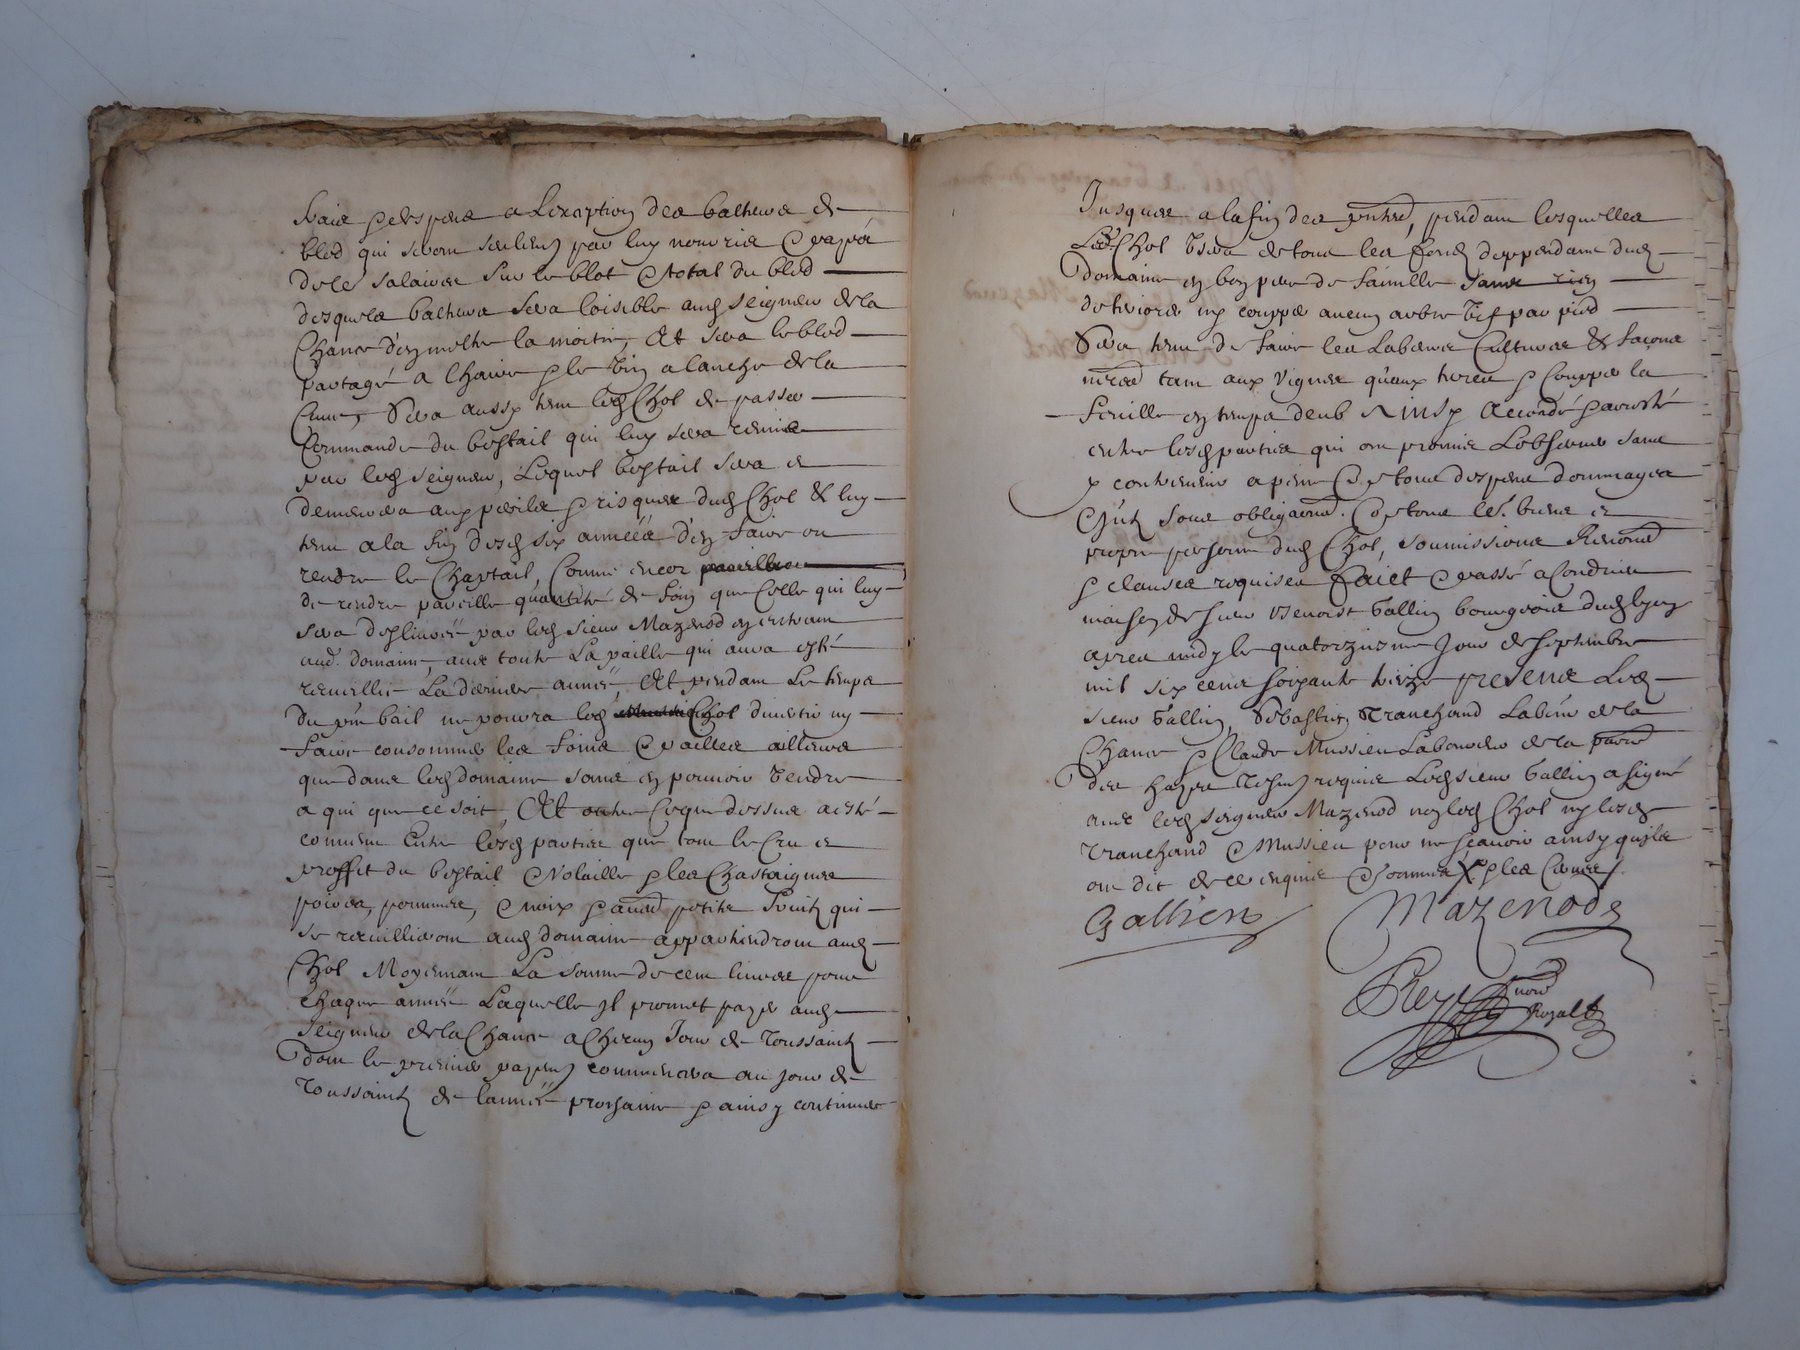 fraix & despens a L'exception des batheurs de
bled qui seront seulem^t par luy nourris & payés
de le^s salaires sur le blot & total du bled
desquels batheurs sera loisible aud seigneur de la
Chance d'en mettre la moitie, Et sera le bled
partagé a l'haire & le vin a l'anche de la
Cuue, Sera aussy tenu led Chol de passer
Commande du bestail qui luy sera remis
par led seigneur, Lequel bestail sera et
demeurera aux perils & risques dud Chol & luy
tenu a la fin desd six années d'en faire ou
rendre le Chaptail, Comme encor
de rendre pareille quantité de foin que Celle qui luy
sera desliurée par led sieur Mazenod en entrant
aud. domaine, auec toute La paille qui aura esté
recueillie La derniere année, Et pendant Le temps
du pñt bail ne pourra led Chol diuertir ny
faire consommer les foins & pailles ailleurs
que dans led domaine sans en pouuoir vendre
a qui que ce soit, Et outre Ce que dessus a esté
conuenu Entre lesd parties que tout le Cru et
proffit du bestail & volaille & les Chastaignes
poires, pommes, & noix & autres petits fruits qui
se recuilliront aud domaine appartiendront aud
Chol Moyennant La somme de cent liures pour
chaque année Laquelle Il promet payer aud
seigneur de la Chance a Chacun Jour de Toussaint
dont le premier payem^t commencera au jour de
Toussaint de l'année prochaine & ainsy continuer
Jusques a la fin des pñtes, pendant lesquelles
Led. Chol vsera de tous les fonds deppendants dud
domaine en bon pere de famille sans rien
deteriorer ny coupper aucun arbre vif par pied
Sera tenu de faire les Labeurs Cultures & façons
tant aux vignes qu'aux terres & Coupper la
feuille en temps deub Ainsy Accordé & arresté
entre lesd parties qui ont promis L'obseruer sans
y contreuenir a peine de tous despens dommages
soubs obligaõns. de tous le^s. biens et
propre personne dud Chol, soumissions Renonc
& clauses requises faict & passé a Condrieu
maison de sieur Benoist Gallien bourgeois dud lyeu
apres midy le quatorziesme Jour de septembre
mil six cens soixante treize presens Led
sieur Gallien, Sebastien Tranchand Labour de la
Chance & Claude Mussieu Laboureur de la parr
des Hayes tesm^s requis Led sieur Gallien a signé
auec led seigneur Mazenod non led Chol ny lesd
Tranchand & Mussieu pour ne sçauoir ainsy qu'ils
ont dit de ce enquis & sommés & les Causes
Gallien
Mazenod
Rey
nore
Royal